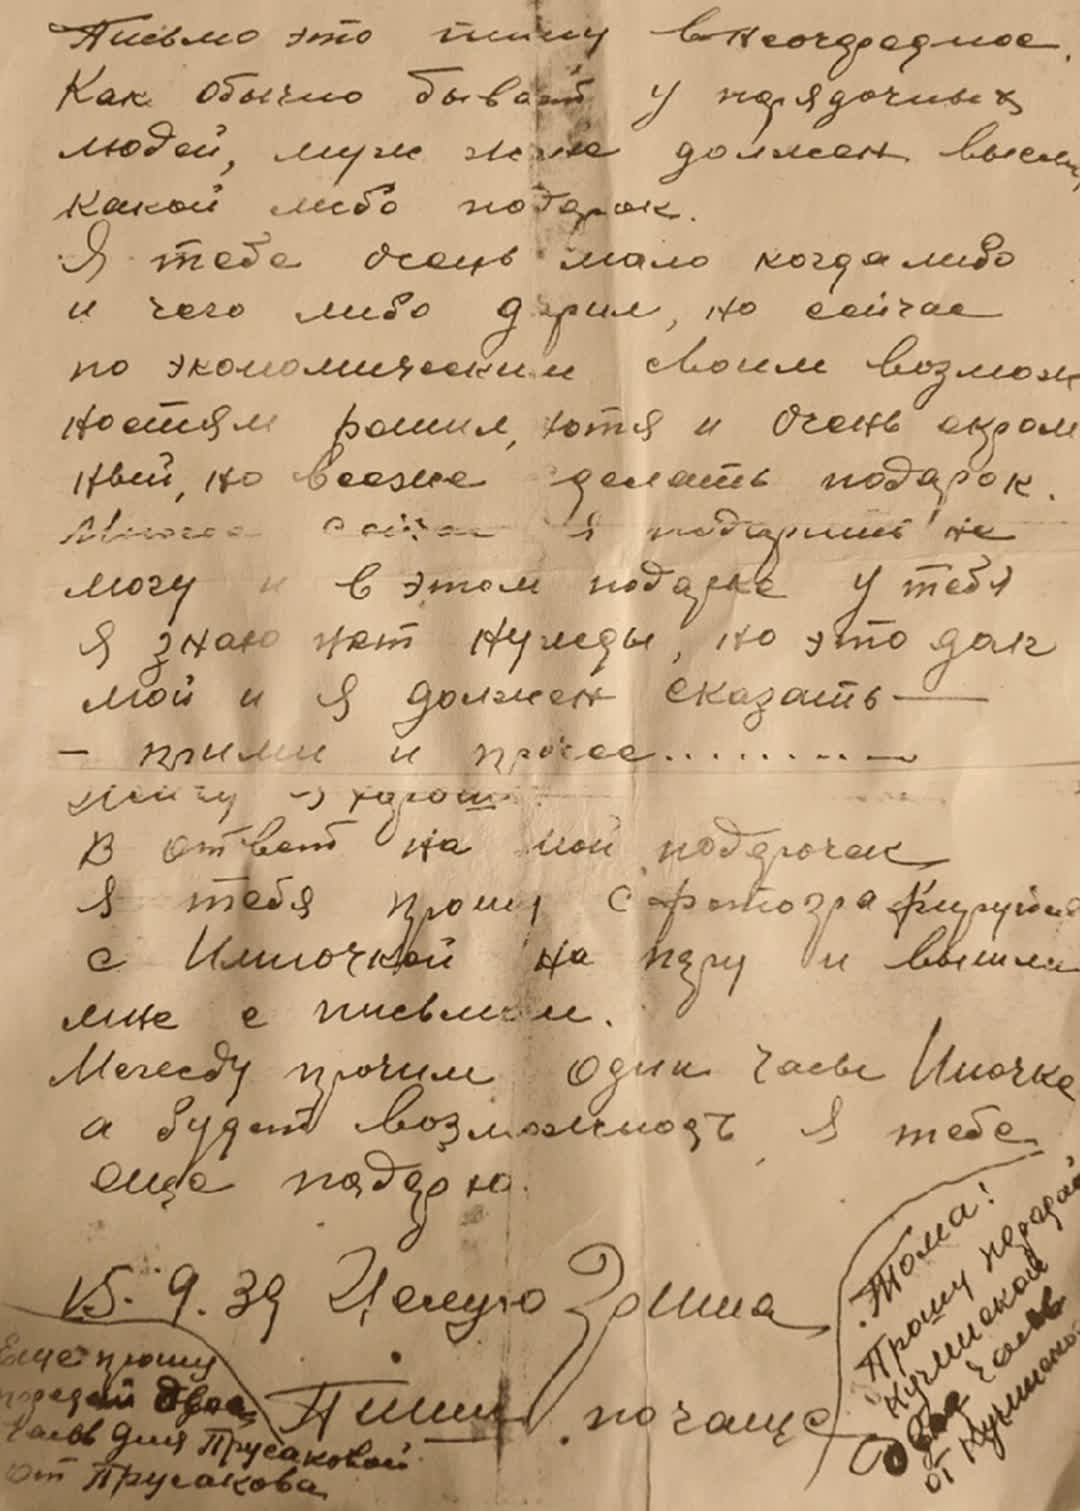 Письмо это пишу внеочередное.
Как обычно бывает у порядочных
людей, муж жене должен
какой либо подарок.
Я тебе очень мало когда либо
и чего либо дарил, но сейчас
по экономическим своим возмож
ностям решил, хотя и очень скром
ный, но всеже сделать подарок.
я подарить не
могу и в этом подарке у тебя
я знаю нет нужды, но это долг
мой и я должен сказать —
— прими и прочее..........
В ответ на мой подарочек
я тебя прошу сфотографируйся
с Имночкой на пару и вышли
мне с письмом.
Между прочим один часы Иночке
а будет возможность я тебе
еще подарю.
15.9.39 Целую Гриша
Пиши почаще
Еще прошу
передай двое
часов для Прусаковой
от Прусакова
Тома!
Прошу передай
Кучинской
часы
от